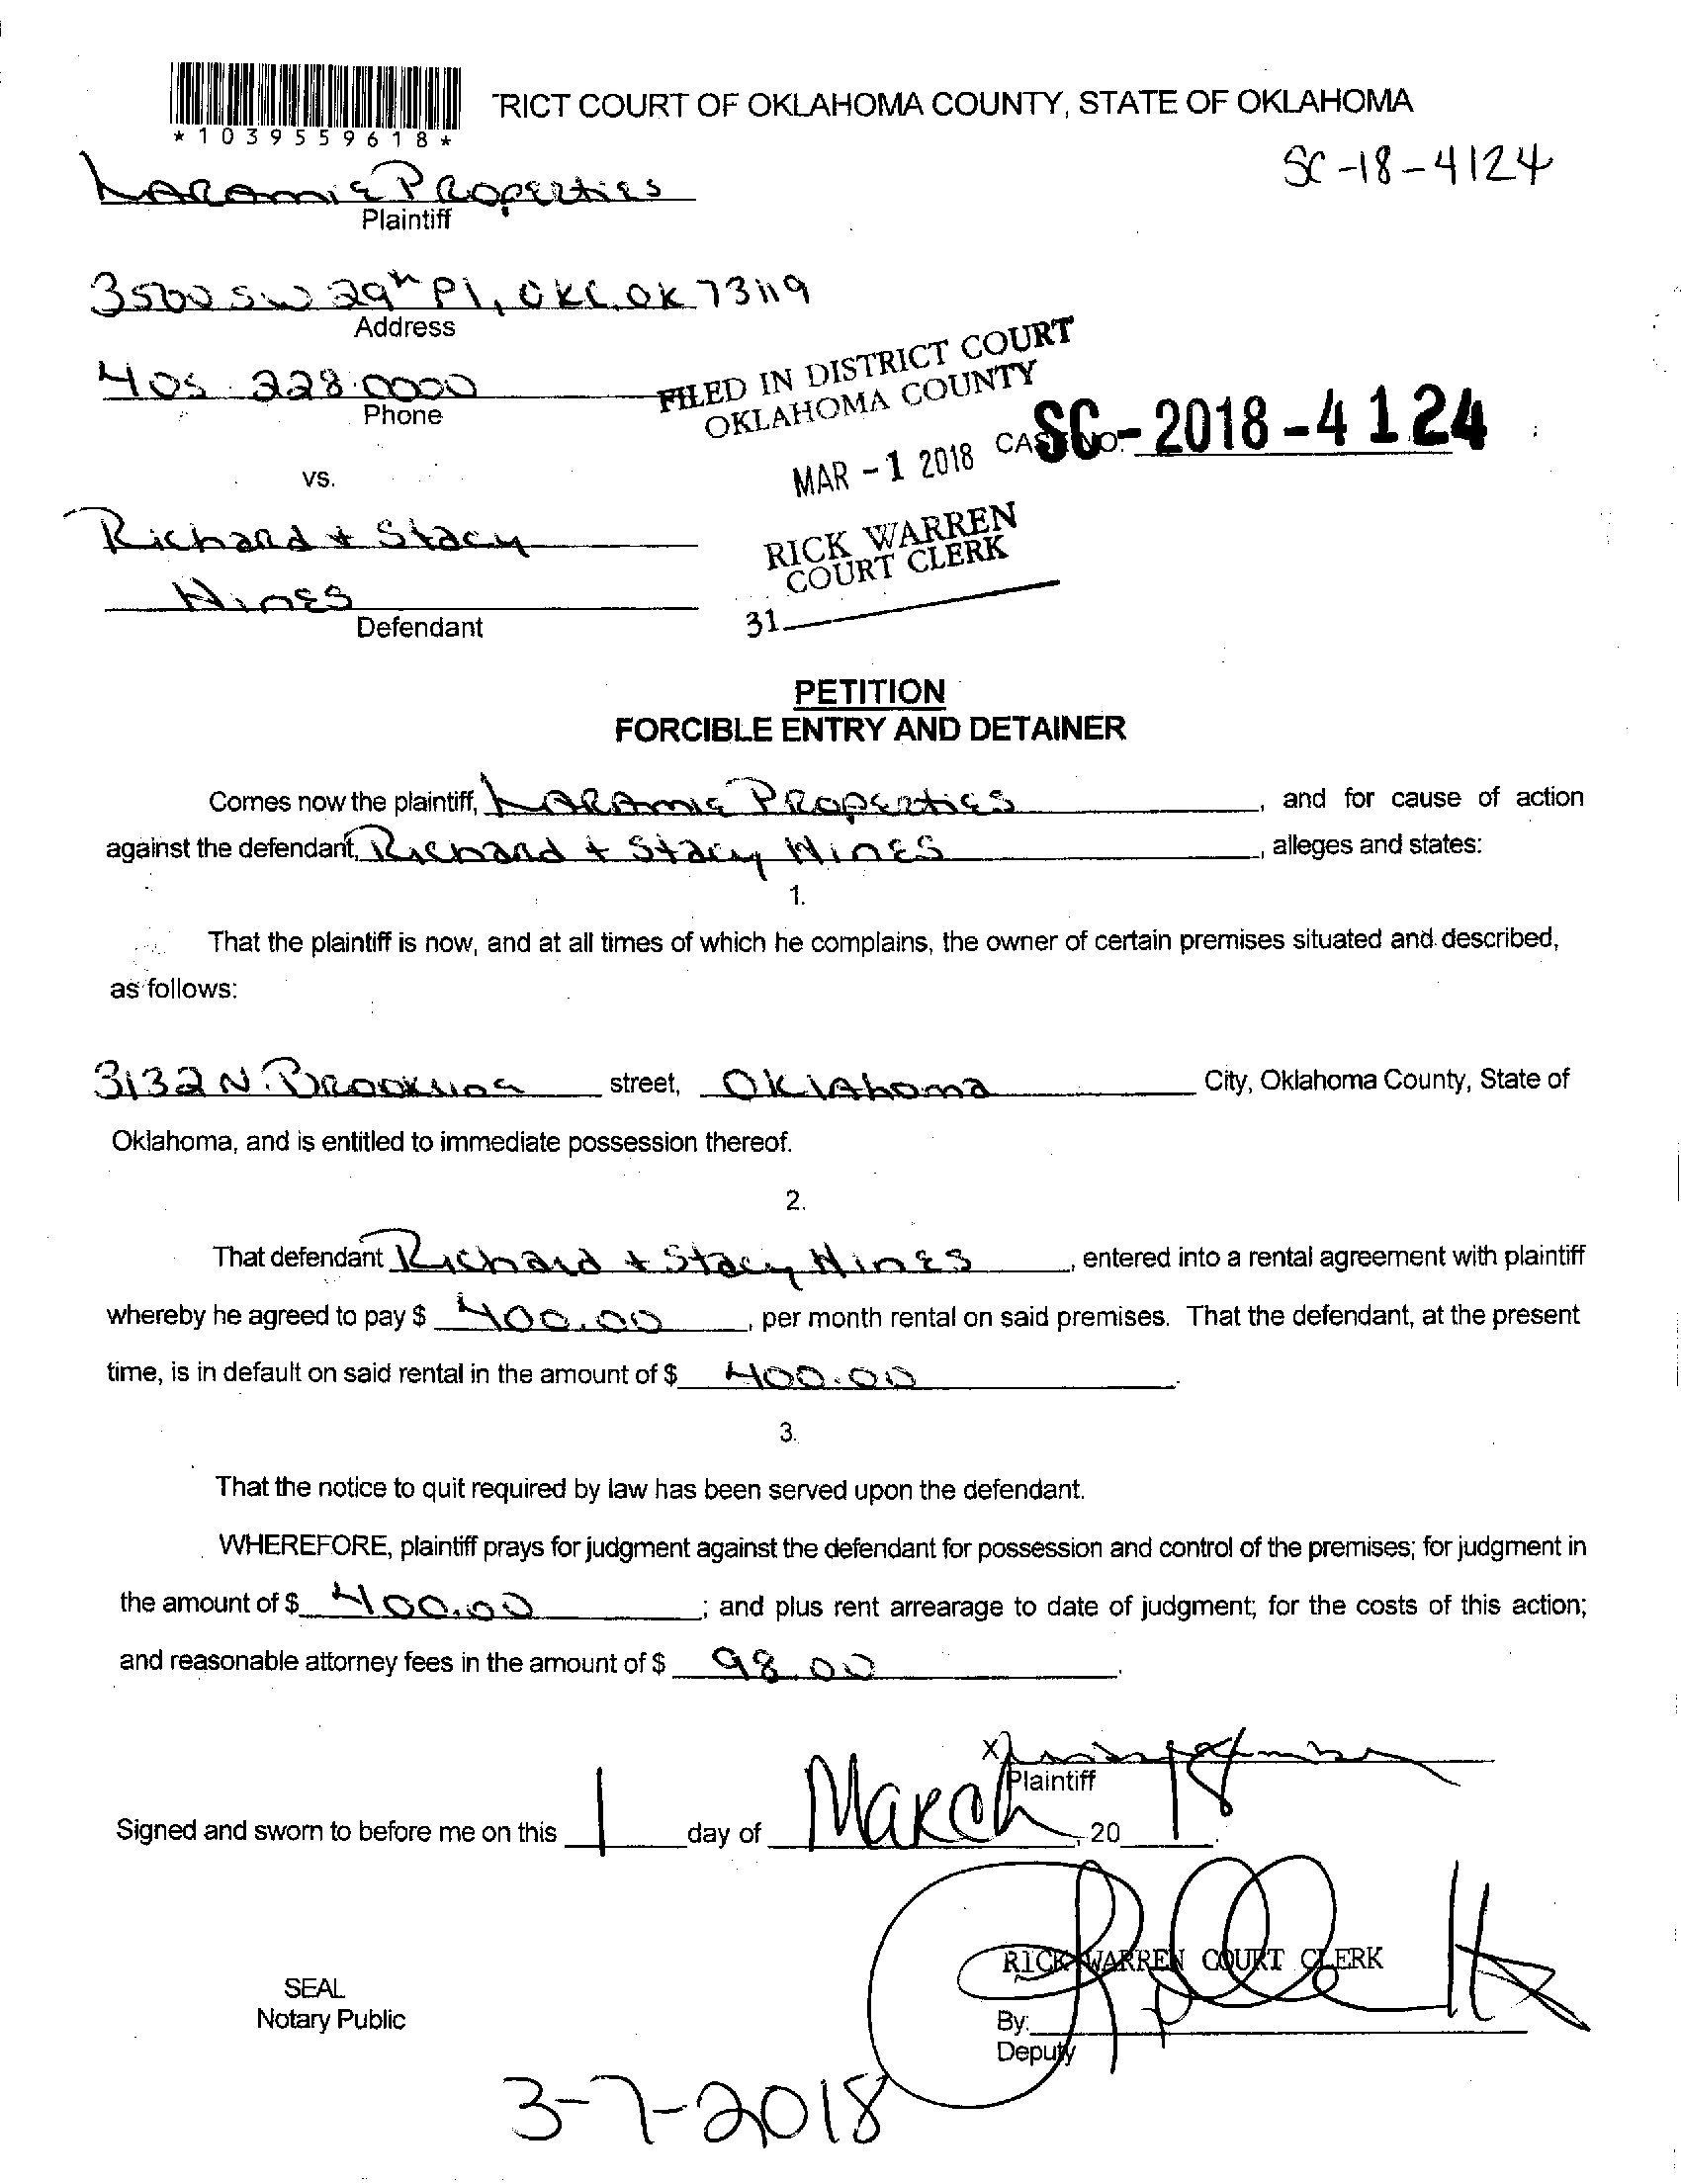 'RICT COURT OF OKLAHOMA COUNTY, STATE OF OKLAHOMA
*1039559618*
SC-18-4124
Laramie Properties
Plaintiff
3500 SW 29th Pl, OKC, OK 73119
Address
405.228.0000
Phone
FILED IN DISTRICT COURT
OKLAHOMA COUNTY
MAR -1 2018
CASE NO. SC-2018-4124
vs.
RICK WARREN
COURT CLERK
31
Richard + Stacy
Hines
Defendant
PETITION
FORCIBLE ENTRY AND DETAINER
Comes now the plaintiff, Laramie Properties, and for cause of action
against the defendant, Richard + Stacy Hines, alleges and states:
1.
That the plaintiff is now, and at all times of which he complains, the owner of certain premises situated and described,
as follows:
3132 N. Brookline street, Oklahoma City, Oklahoma County, State of
Oklahoma, and is entitled to immediate possession thereof.
2.
That defendant Richard + Stacy Hines, entered into a rental agreement with plaintiff
whereby he agreed to pay $ 400.00, per month rental on said premises. That the defendant, at the present
time, is in default on said rental in the amount of $ 400.00.
3.
That the notice to quit required by law has been served upon the defendant.
WHEREFORE, plaintiff prays for judgment against the defendant for possession and control of the premises; for judgment in
the amount of $ 400.00; and plus rent arrearage to date of judgment; for the costs of this action;
and reasonable attorney fees in the amount of $ 98.00.
X
Plaintiff
Signed and sworn to before me on this 1 day of March, 20 18.
RICK WARREN COURT CLERK
SEAL
Notary Public
By:
Deputy
3-7-2018